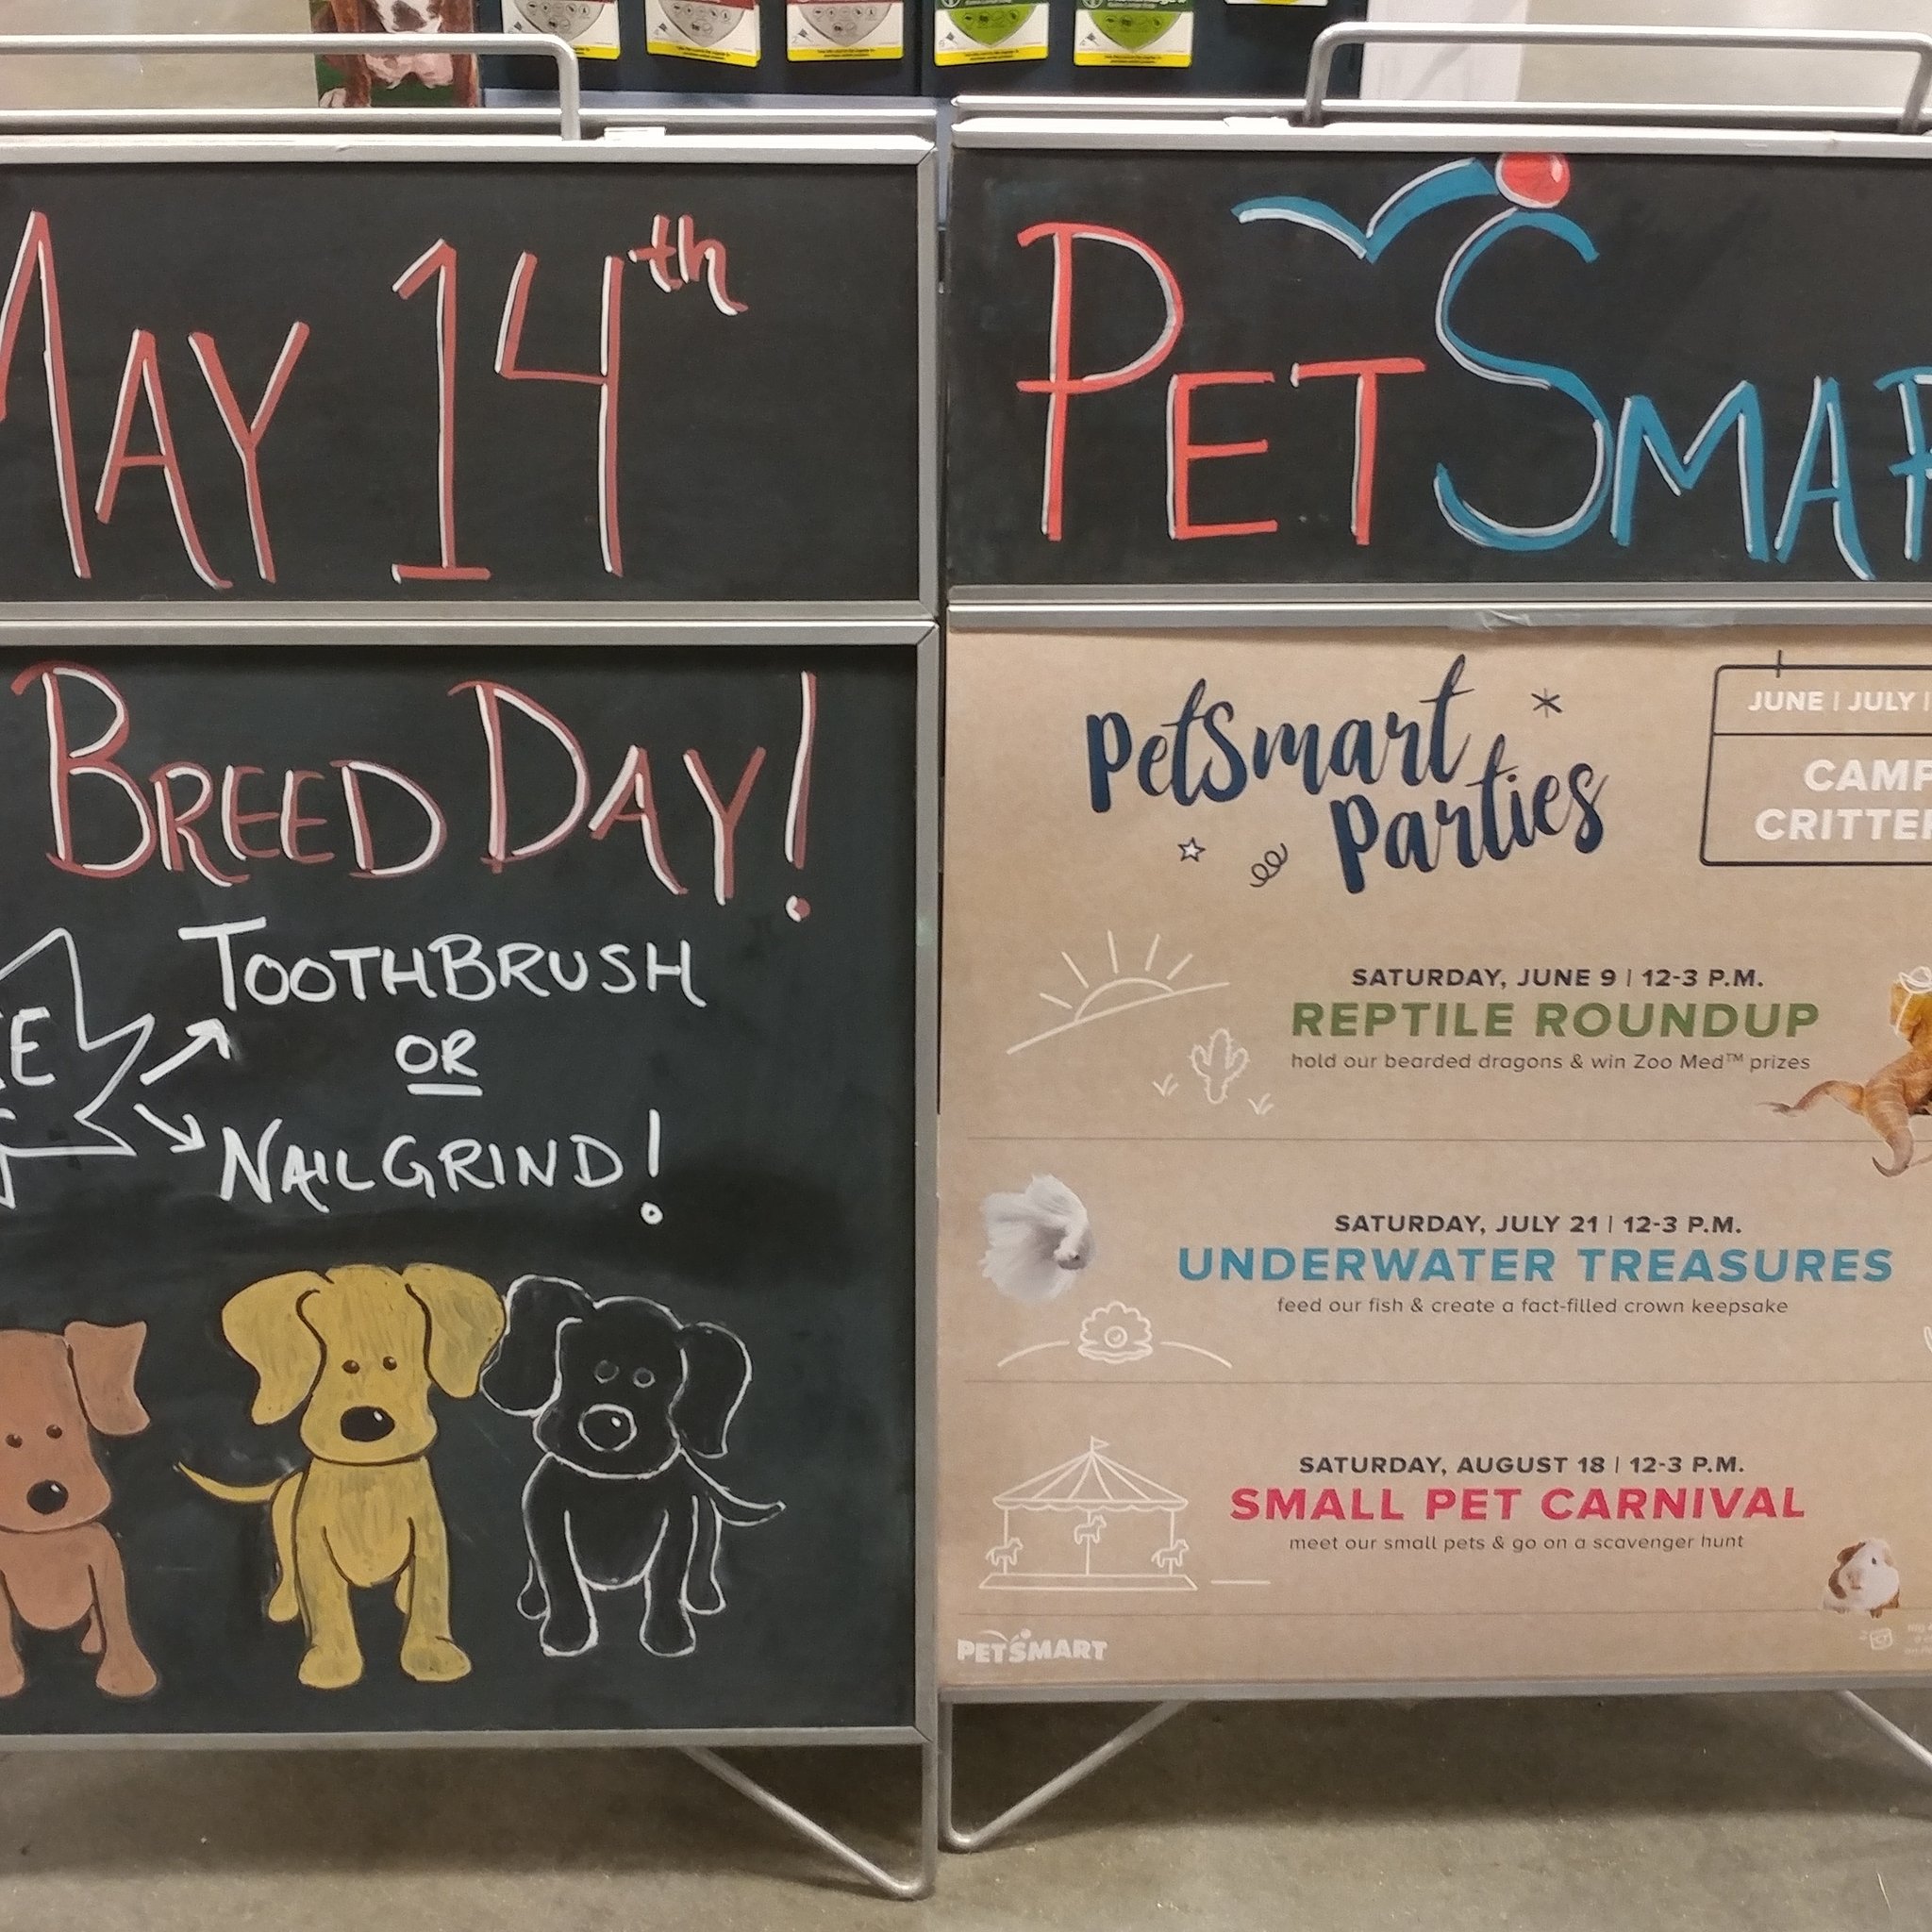 MAY 14th
BREED DAY!
TOOTHBRUSH
OR
NAIL GRIND!
PETSMAR
PetSmart
Parties
JUNE | JULY |
CAMP
CRITTER
SATURDAY, JUNE 9 | 12-3 P.M.
REPTILE ROUNDUP
hold our bearded dragons & win Zoo Med™ prizes
SATURDAY, JULY 21 | 12-3 P.M.
UNDERWATER TREASURES
feed our fish & create a fact-filled crown keepsake
SATURDAY, AUGUST 18 | 12-3 P.M.
SMALL PET CARNIVAL
meet our small pets & go on a scavenger hunt
PETSMART